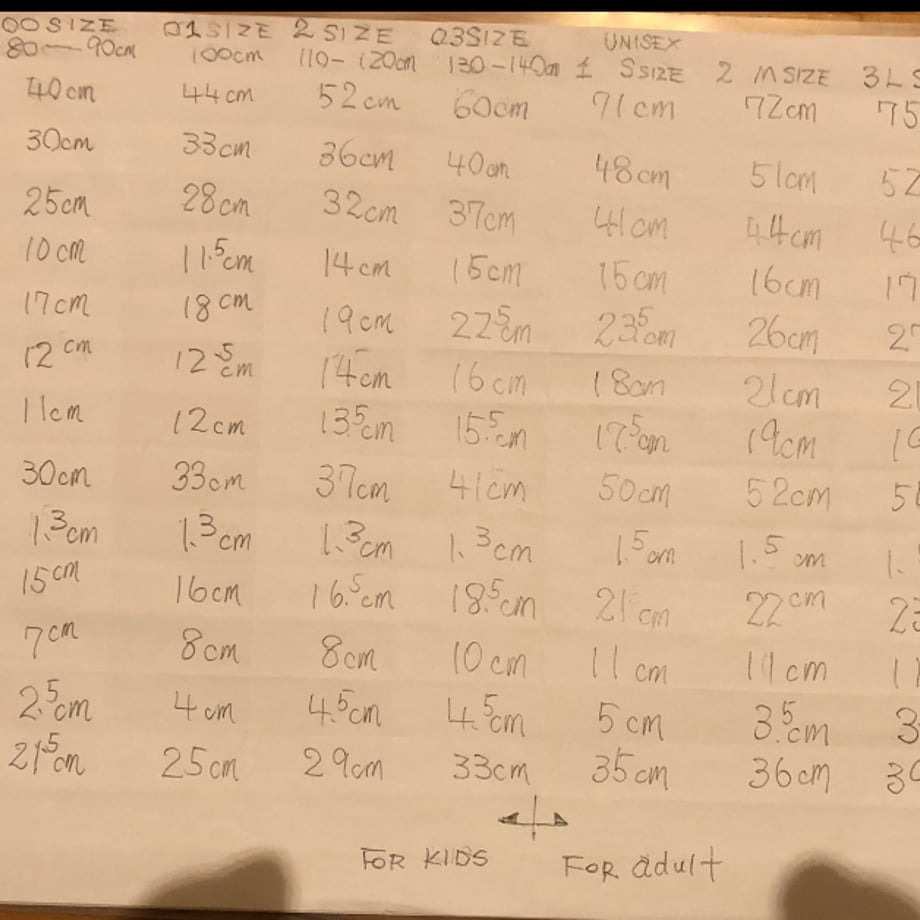 00 SIZE 01 SIZE 2 SIZE 03 SIZE UNISEX
80—90cm 100cm 110-120cm 130-140cm 1 S SIZE 2 M SIZE 3 L S
40cm 44cm 52cm 60cm 71cm 72cm 75
30cm 33cm 36cm 40cm 48cm 51cm 52
25cm 28cm 32cm 37cm 41cm 44cm 46
10cm 11.5cm 14cm 15cm 15cm 16cm 17
17cm 18cm 19cm 22.5cm 23.5cm 26cm 2
12cm 12.5cm 14cm 16cm 18cm 21cm 21
11cm 12cm 13.5cm 15.5cm 17.5cm 19cm 19
30cm 33cm 37cm 41cm 50cm 52cm 5
1.3cm 1.3cm 1.3cm 1.3cm 1.5cm 1.5cm 1.
15cm 16cm 16.5cm 18.5cm 21cm 22cm 23
7cm 8cm 8cm 10cm 11cm 11cm 11
2.5cm 4cm 4.5cm 4.5cm 5cm 3.5cm 3
21.5cm 25cm 29cm 33cm 35cm 36cm 3
FOR KIDS FOR adult